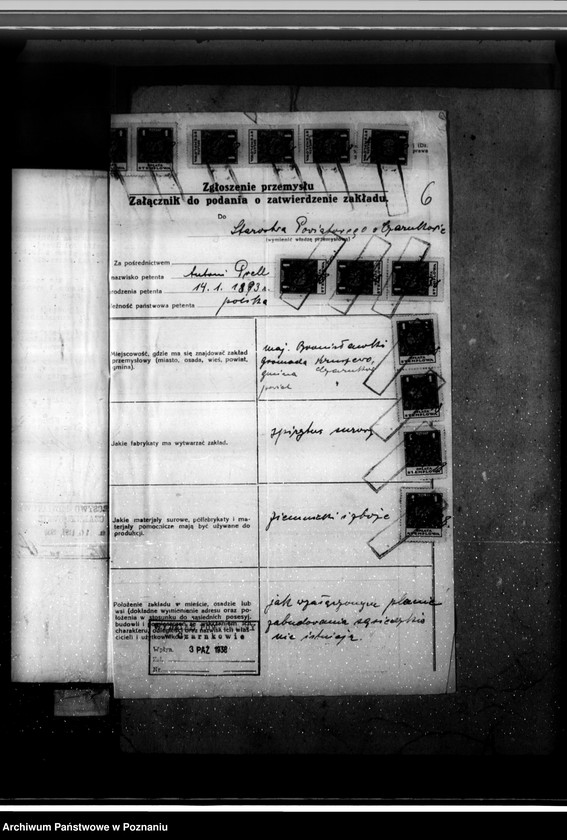 Zgłoszenie przemysłu
Załącznik do podania o zatwierdzenie zakładu.
6
Do
Starostwa Powiatowego
(wymienić władzę przemysłową)
Za pośrednictwem
nazwisko petenta Antoni
rodzenia petenta 14. 1. 1893 r.
leżność państwowa petenta polska
Miejscowość, gdzie ma się znajdować zakład
przemysłowy (miasto, osada, wieś, powiat,
gmina).
maj. Bronisławki
gromada
gmina Czarnków
powiat "
Jakie fabrykaty ma wytwarzać zakład.
spirytus surowy
Jakie materjały surowe, półfabrykaty i ma-
terjały pomocnicze mają być używane do
produkcji.
ziemniaki i zboże
Położenie zakładu w mieście, osadzie lub
wsi (dokładne wymienienie adresu oraz po-
łożenia w stosunku do sąsiednich posesyj,
budowli i
charakteru, odległości oraz nazwisk ich właś-
cicieli i użytkowników)
jak w załączonym planie
zabudowania sąsiedzkie
nie istnieją.
Czarnkowie
Wpłyn. 3 PAŹ 1938
Zał.
Nr.
Archiwum Państwowe w Poznaniu